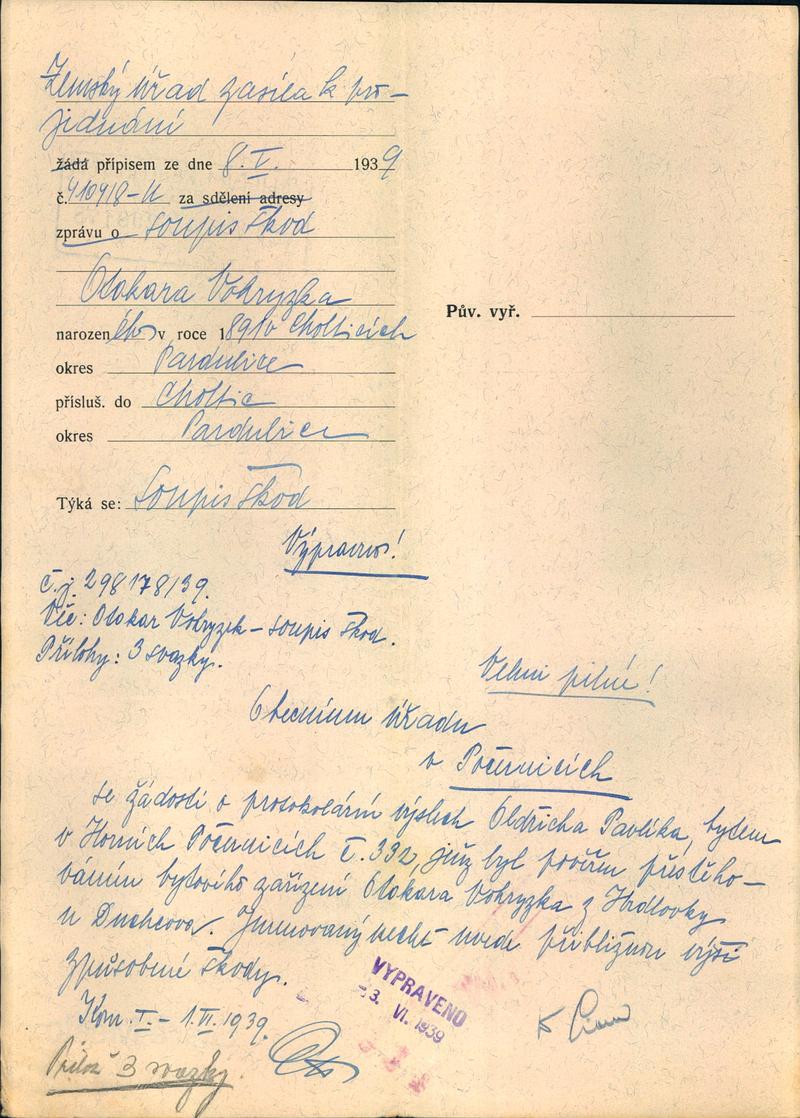 Zemský úřad zasílá k pro-
jednání
žádá přípisem ze dne 8. V. 1939
č. 410418-II za sdělení adresy
zprávu o soupis škod
Otokara Vohryzka
narozen ého v roce 1891 v Cholticích
okres Pardubice
přísluš. do Choltic
okres Pardubice
Týká se: Soupis škod
Pův. vyř.
Výpravno!
Č. j. 298178/39.
Věc: Otokar Vohryzek – soupis škod.
Přílohy: 3 svazky.
Velmi pilné!
Obecnímu úřadu
v Počernicích
se žádostí o protokolární výslech Oldřicha Pavlíka, bytem
v Horních Počernicích č. 332, jenž byl pověřen přestěho-
váním bytového zařízení Otokara Vohryzka z Hrdlovky
u Duchcova. Jmenovaný nechť uvede přibližnou výši
způsobené škody.
Kom. I. – 1. VI. 1939.
VYPRAVENO
-3. VI. 1939
Přilož 3 svazky